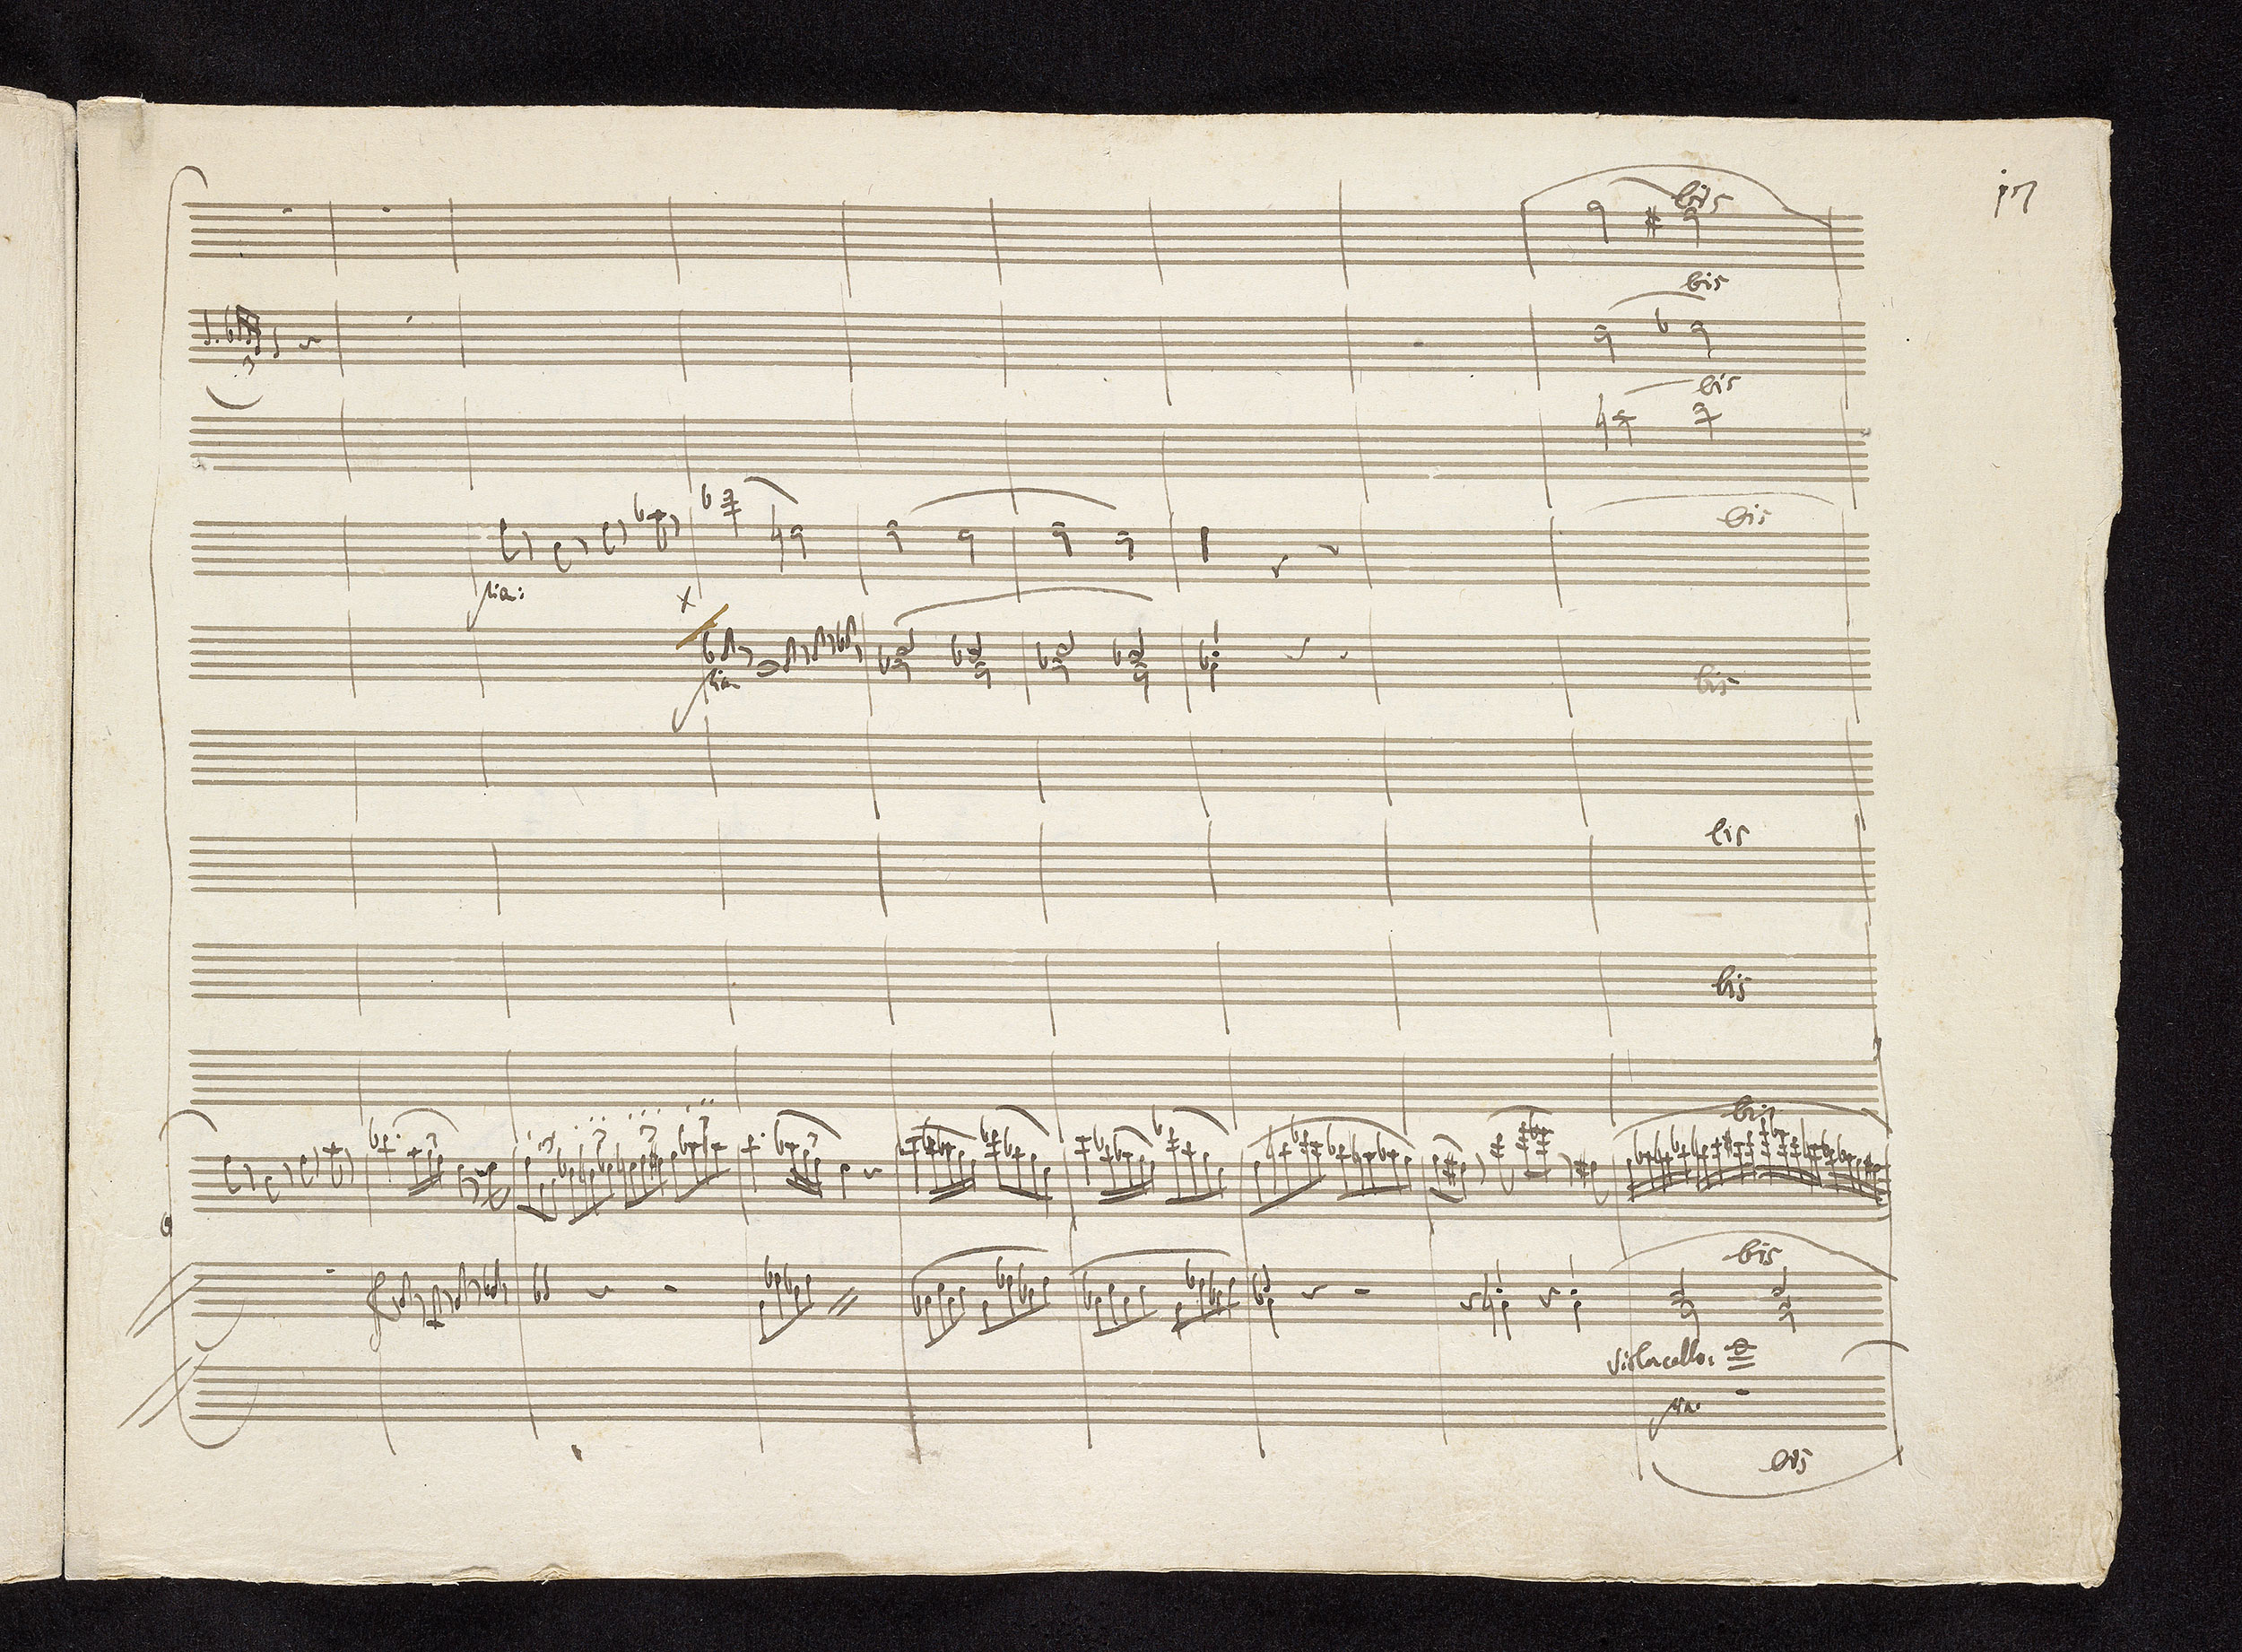 17
bis
bis
bis
bis
pia:
pia
bis
bis
bis
bis
bis
violoncello:
pia:
bis